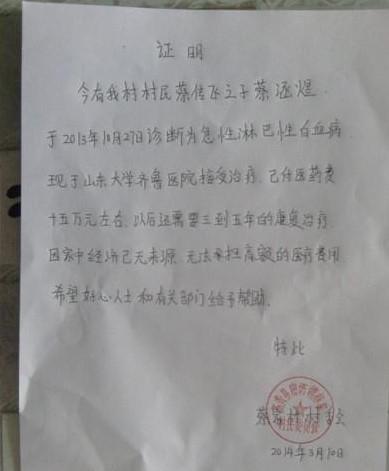 证明
今有我村村民蔡传飞之子蔡涵煜.
于2013年10月27日诊断为急性淋巴性白血病
现于山东大学齐鲁医院接受治疗.已住医药费
十五万元左右.以后还需要三到五年的康复治疗.
因家中经济已无来源.无法承担高额的医疗费用
希望好心人士和有关部门给予帮助.
特此
蔡家村村委会
村民委员会
2014年3月10日